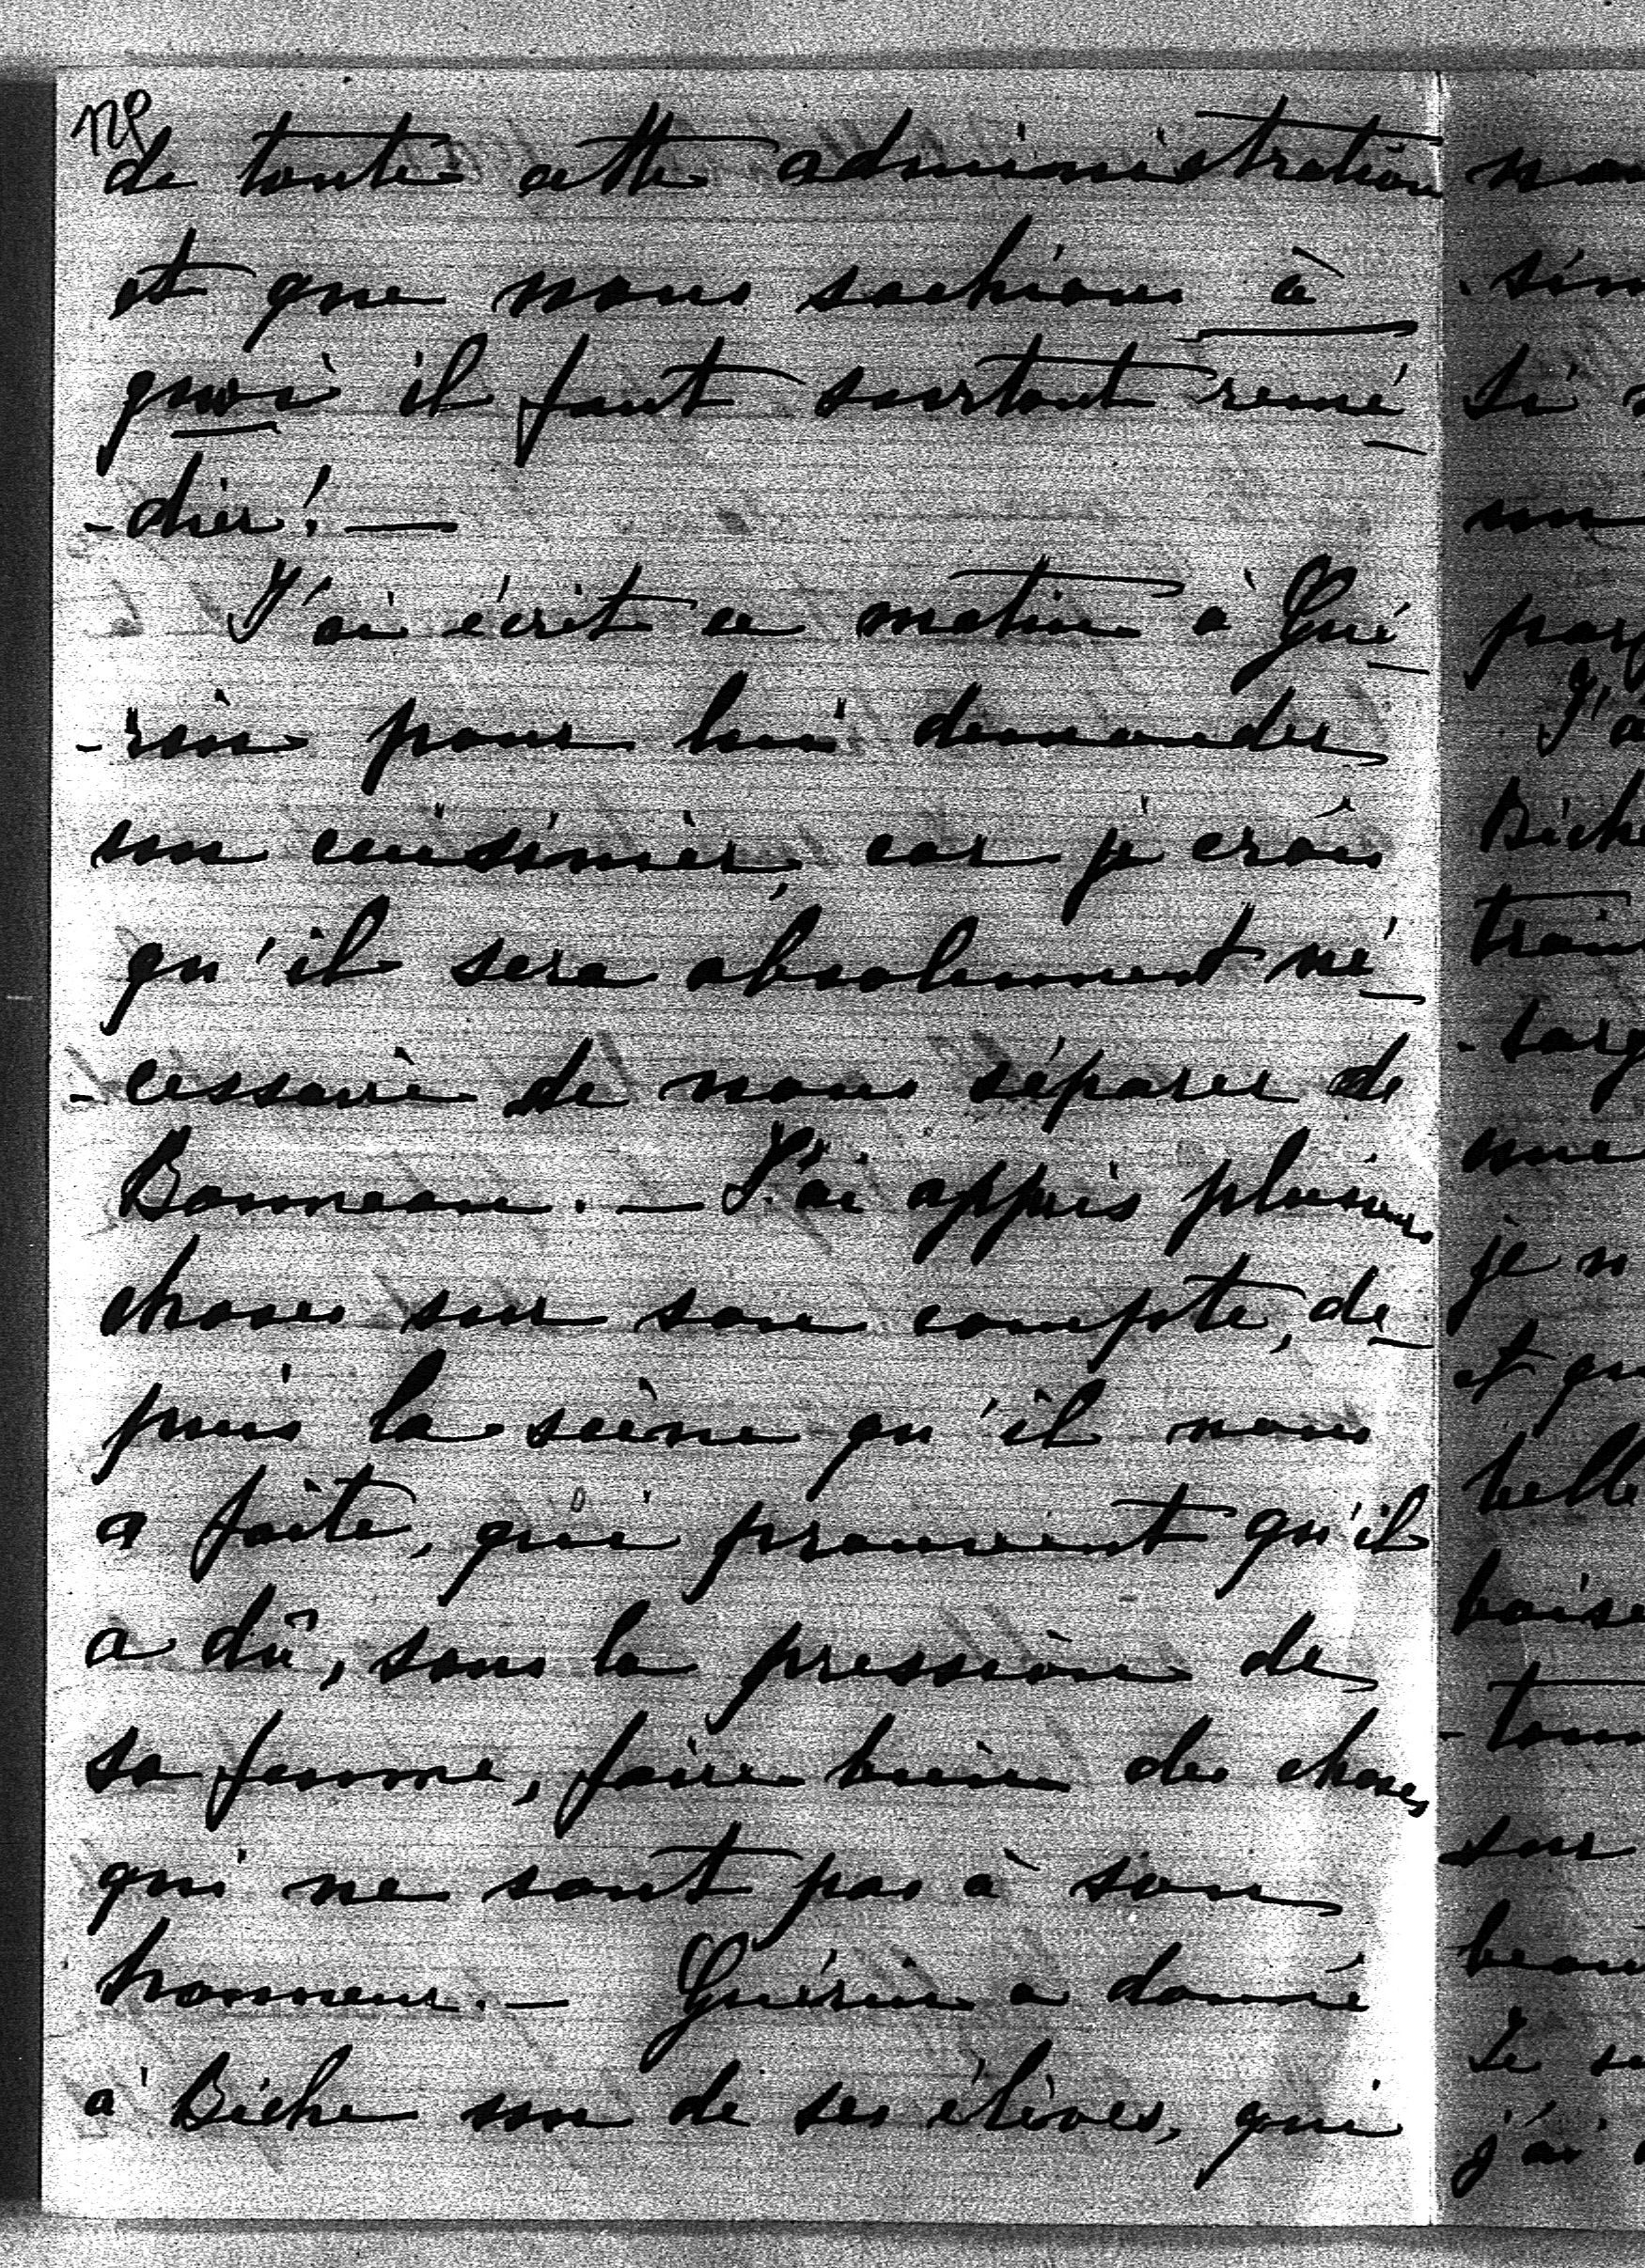 de toute cette administration
et que nous sachions à
quoi il faut surtout remé-
-dier! —
J'ai écrit ce matin à Gué-
-rin pour lui demander
un cuisinier, car je crois
qu'il sera absolument né-
-cessaire de nous séparer de
Bonneau. — J'ai appris plusieurs
choses sur son compte, de-
puis la scène qu'il nous
a faite, qui prouvent qu'il
a dû, sous la pression de
sa femme, faire bien des choses
qui ne sont pas à son
honneur. — Guérin a donné
à Biche un de ses élèves, qui
si
un
J'a
Biche
je n
et qu
belle
sur
Je
j'ai